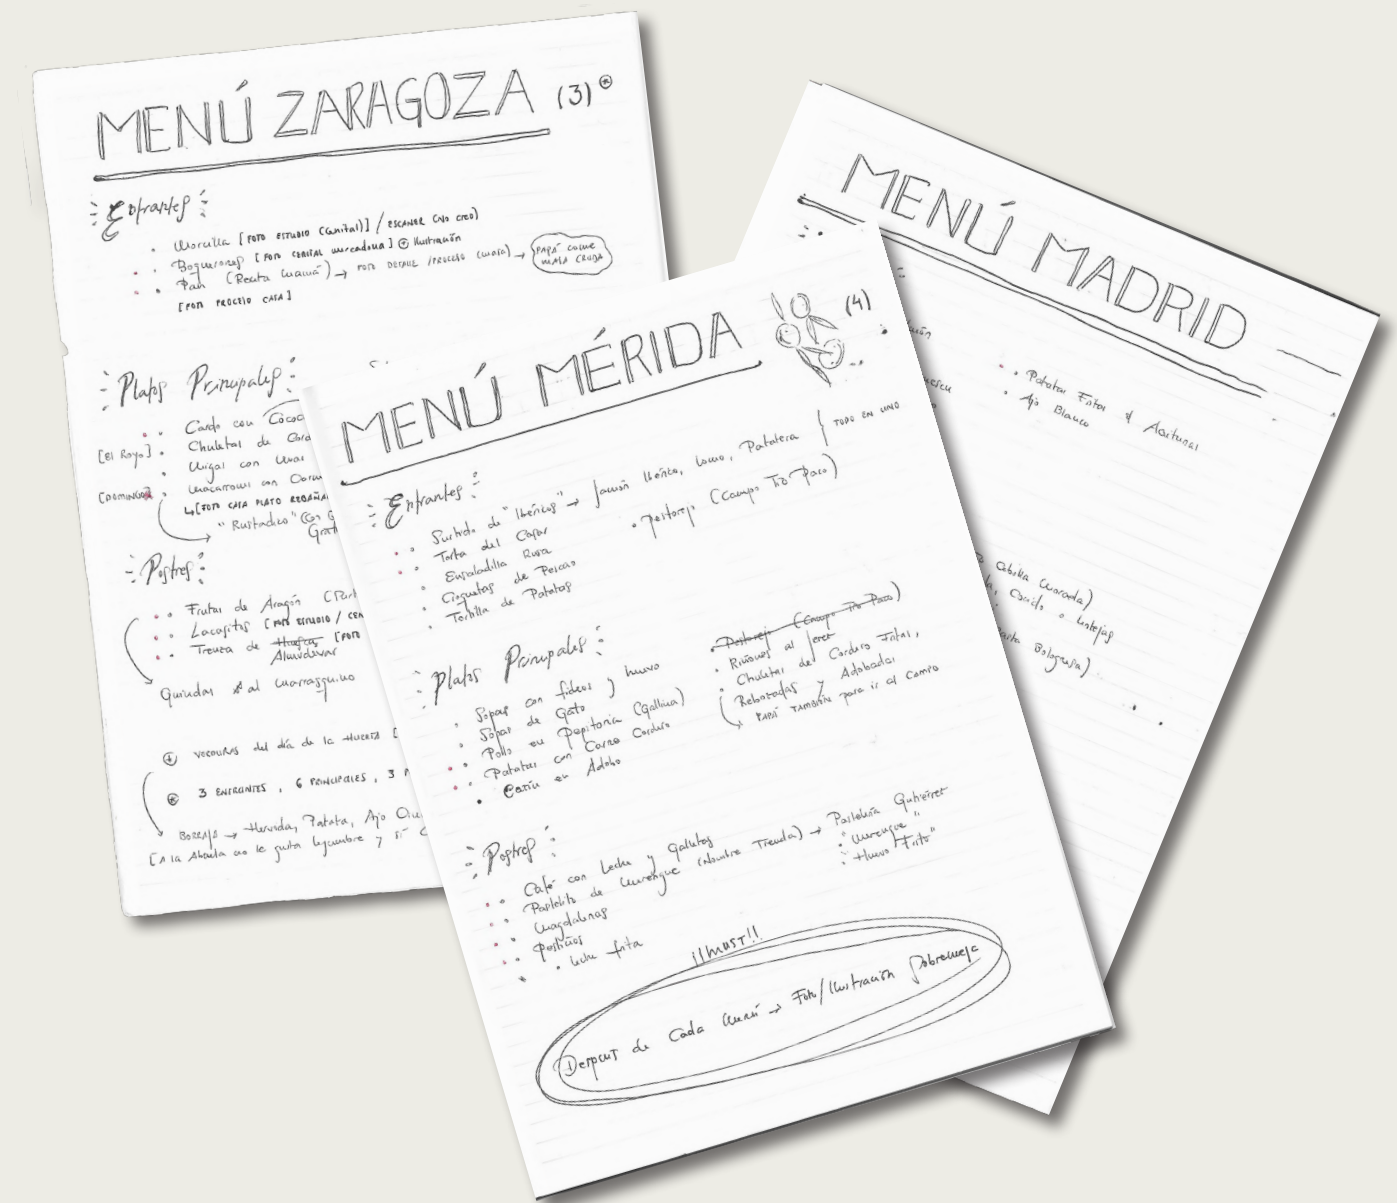 MENÚ ZARAGOZA (3)
Entrantes
Morcilla [FOTO ESTUDIO (Genital)] / ESCANER (NO CREO)
Boquerones [FOTO GENITAL mercadona] + Ilustración
Pan (Receta Mamá) → FOTO DETALLE / PROCESO (masa) → PAPÁ COME MASA CRUDA
[FOTO PROCESO CASA]
Platos Principales
Cardo con Cococ
[El Royo] Chuletas de Cord
Migas con
[DOMINGO] Macarrones con
↳[FOTO CASA PLATO REBAÑA
"Rustadico" (Con
Grat
Postres
Frutas de Aragón
Lacasitos [FOTO ESTUDIO /
Trenza de Huesca [FOTO
Almudévar
Guindas al Marrasquino
+ VERDURAS del día de la HUERTA [
3 ENTRANTES, 6 PRINCIPALES, 3 P
BORRAJA → Hervida, Patata, Ajo
[A la Abuela no le gusta legumbre y sí
MENÚ MÉRIDA (4)
Entrantes
Surtido de "Ibéricos" → Jamón Ibérico, Lomo, Patatera } TODO EN UNO
Torta del Casar
Ensaladilla Rusa
Croquetas de Pescao
Tortilla de Patatas
Pestorejo (Campo Tío Paco)
Platos Principales
Sopas con fideos y huevo
Sopas de Gato
Pollo en Pepitoria (Gallina)
Patatas con Carne Cordero
Cazón en Adobo
Pestorejo (Campo Tío Paco)
Riñones al Jerez
Chuletas de Cordero Fritas,
Rebozadas y Adobadas
PAPÁ TAMBIÉN para ir al campo
Postres
Café con Leche y Galletas
Pastelito de Merengue (Nombre Tienda) → Pastelería Gutiérrez
"Merengue"
"Huevo Frito"
Magdalenas
Pestiños
Leche frita
¡¡MUST!!
Después de Cada Menú → Foto/Ilustración Sobremesa
MENÚ MADRID
Patatas Fritas & Aceitunas
Ajo Blanco
Cebolla Morada)
Cocido o Lentejas
Boloñesa)